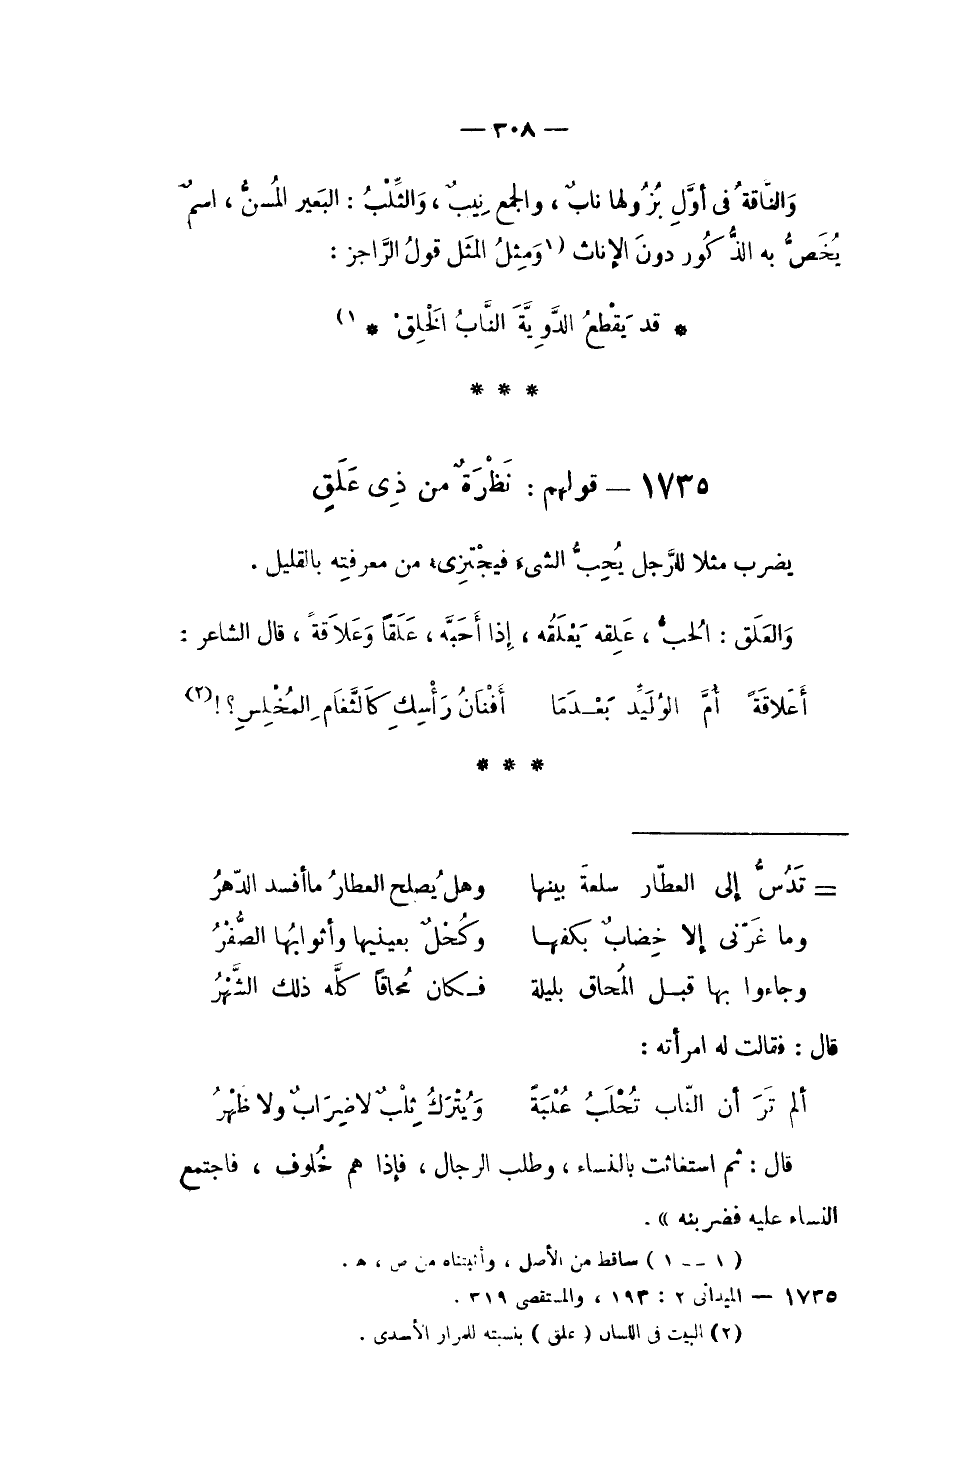 — ٣٠٨ —
وَالنّاقةُ فى أوَّلِ بُزُولها نابٌ ، والجمع نِيبٌ ، وَالثِّلْبُ : البَعير المُسنُّ ، اسمٌ
يُخَصُّ به الذُّكُور دونَ الإناث (١وَمِثلُ المَثَل قولُ الرَّاجز :
* قد يَقْطعُ الدَّوِيَّةَ النَّابُ الَخْلِقْ * ١)
* * *
١٧٣٥ — قولهم : نَظْرَةٌ من ذِى عَلَقٍ
يضرب مثلا للرَّجل يُحِبُّ الشىء فيجْتزِىء من معرفتِه بالقليل .
وَالعَلَق : الْحبُّ ، عَلِقه يَعْلَقُه ، إِذا أَحَبَّه ، عَلَقاً وَعَلاَقةً ، قال الشاعر :
أَعَلاقَةً أُمَّ الوُلَيِّد بَعْـدَمَا أَفْنَانُ رَأْسِكِ كَالثَّغَامِ المُخْلِسِ؟!(٢)
* * *
= تَدُسُّ إلى العطّار سلعةَ بيتها وهل يُصلح العطارُ ماأفسد الدّهرُ
وما غَرّنى إلا خِضابٌ بكفها وكُحْلٌ بعينيها وأثوابُها الصُّفْرُ
وجاءوا بها قبـل المُحاق بليلة فـكان مُحاقاً كلَّه ذلك الشَّهْرُ
قال : فقالت له امرأته :
ألم تَرَ أن النّاب تُحْلَبُ عُلْبَةً وَيُتْرَكُ ثِلْبٌ لاضِرَابٌ ولا ظَهْرُ
قال : ثم استغاثت بالنساء ، وطلب الرجال ، فإذا هم خُلوف ، فاجتمع
النساء عليه فضربنه » .
( ١ -- ١ ) ساقط من الأصل ، وأثبتناه من ص ، هـ .
١٧٣٥ — الميدانى ٢ : ١٩٣ ، والمستقصى ٣١٩ .
(٢) البيت فى اللسان ( علق ) بنسبته للمرار الأسدى .